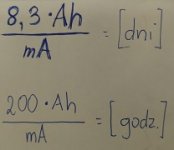 8,3 · Ah
mA = [dni]
200 · Ah
mA = [godz.]